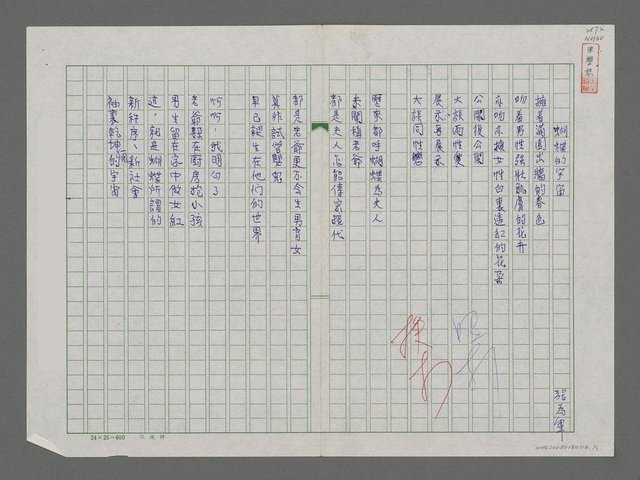 蝴蝶的宇宙
張為軍
擁著滿園出牆的春色
吻著男性強壯肌膚的花卉
亦吻亦擁女性白裏透紅的花蕾
公開復公開
大談兩性愛
展示再展示
大談同性戀
歷來都呼蝴蝶為夫人
未聞稱老爺
都是夫人怎能傳宗接代
都是老爺更不会生男育女
莫非試管嬰兒
早已誕生在他們的世界
啊啊，我明白了
老爺幫在厨房抱小孩
男生留在家中做女紅
這，就是蝴蝶所謂的
新秩序、新社會
袖裏乾坤的宇宙
24×25=600